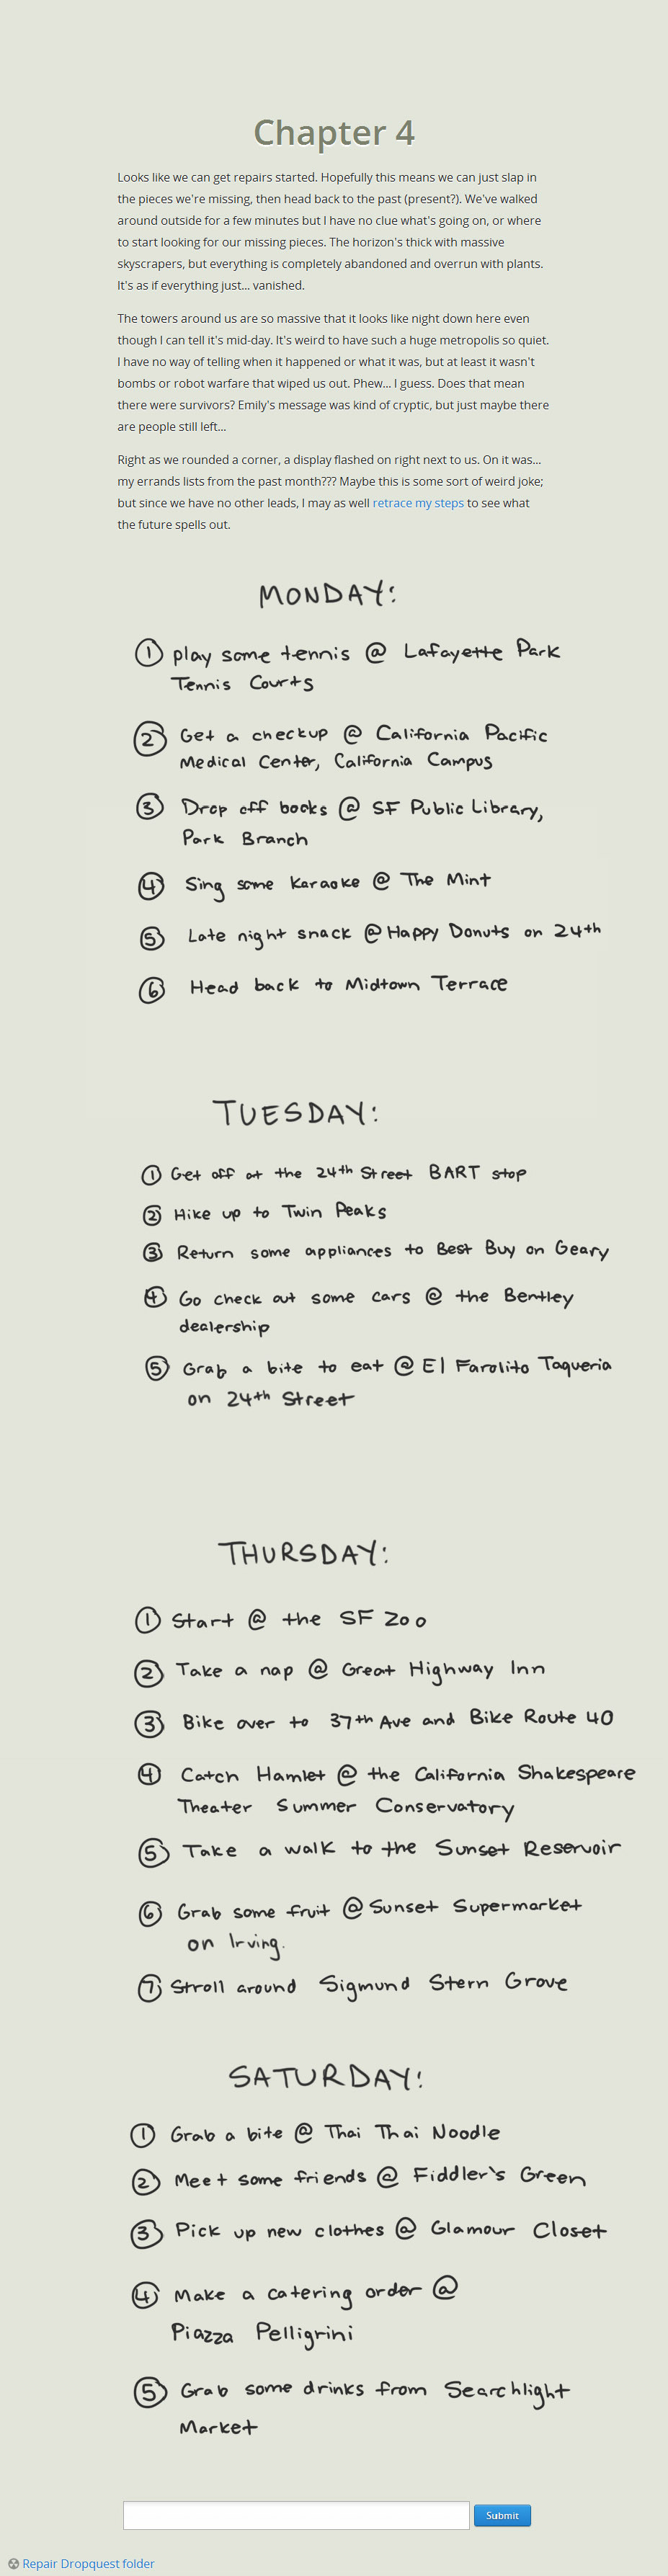 Chapter 4
Looks like we can get repairs started. Hopefully this means we can just slap in
the pieces we're missing, then head back to the past (present?). We've walked
around outside for a few minutes but I have no clue what's going on, or where
to start looking for our missing pieces. The horizon's thick with massive
skyscrapers, but everything is completely abandoned and overrun with plants.
It's as if everything just... vanished.
The towers around us are so massive that it looks like night down here even
though I can tell it's mid-day. It's weird to have such a huge metropolis so quiet.
I have no way of telling when it happened or what it was, but at least it wasn't
bombs or robot warfare that wiped us out. Phew... I guess. Does that mean
there were survivors? Emily's message was kind of cryptic, but just maybe there
are people still left...
Right as we rounded a corner, a display flashed on right next to us. On it was...
my errands lists from the past month??? Maybe this is some sort of weird joke;
but since we have no other leads, I may as well retrace my steps to see what
the future spells out.
MONDAY:
1 play some tennis @ Lafayette Park
Tennis Courts
2 Get a checkup @ California Pacific
Medical Center, California Campus
3 Drop off books @ SF Public Library,
Park Branch
4 Sing some karaoke @ The Mint
5 Late night snack @ Happy Donuts on 24th
6 Head back to Midtown Terrace
TUESDAY:
1 Get off at the 24th Street BART stop
2 Hike up to Twin Peaks
3 Return some appliances to Best Buy on Geary
4 Go check out some cars @ the Bentley
dealership
5 Grab a bite to eat @ El Farolito Taqueria
on 24th Street
THURSDAY:
1 Start @ the SF Zoo
2 Take a nap @ Great Highway Inn
3 Bike over to 37th Ave and Bike Route 40
4 Catch Hamlet @ the California Shakespeare
Theater Summer Conservatory
5 Take a walk to the Sunset Reservoir
6 Grab some fruit @ Sunset Supermarket
on Irving.
7 Stroll around Sigmund Stern Grove
SATURDAY:
1 Grab a bite @ Thai Thai Noodle
2 Meet some friends @ Fiddler's Green
3 Pick up new clothes @ Glamour Closet
4 Make a catering order @
Piazza Pelligrini
5 Grab some drinks from Searchlight
Market
Submit
Repair Dropquest folder